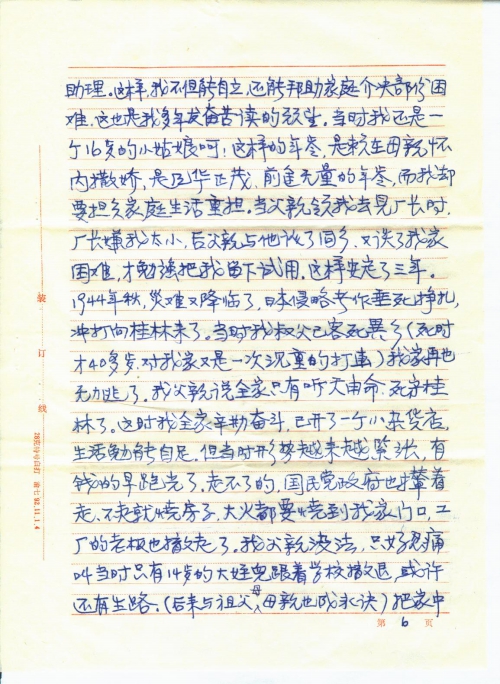 助理。这样,我不但能自立,还能帮助家庭介决部份困
难,这也是我多年发奋苦读的 。当时我还是一
个16岁的小姑娘呵!这样的年令,是赖在母亲怀
内撒娇,是风华正茂、前途无量的年令,而我却
要担负家庭生活重担。当父亲领我去见厂长时,
厂长嫌我太小,后父亲与他认了同乡,又谈了我家
困难,才勉强把我留下试用。这样安定了三年。
1944年秋,灾难又降临了,日本侵略者作垂死挣扎,
冲打向桂林来了。当时我叔父已客死异乡(死时
才40多岁,对我家又是一次沉重的打击)我家再也
无力逃了。我父亲说全家只有听天由命,死守桂
林了。这时我全家辛勤奋斗,已开了一个小杂货店,
生活勉能自足,但当时形势越来越紧张,有
钱的早跑光了,走不了的,国民党政府也撵着
走,不走就烧房子,大火都要烧到我家门口,工
厂的老板也撤走了。我父亲没法,只好忍痛
叫当时只有14岁的大姪儿跟着学校撤退,或许
还有生路。(后来与祖父母,母亲也成永诀)把家中
第 6 页
装
订
线